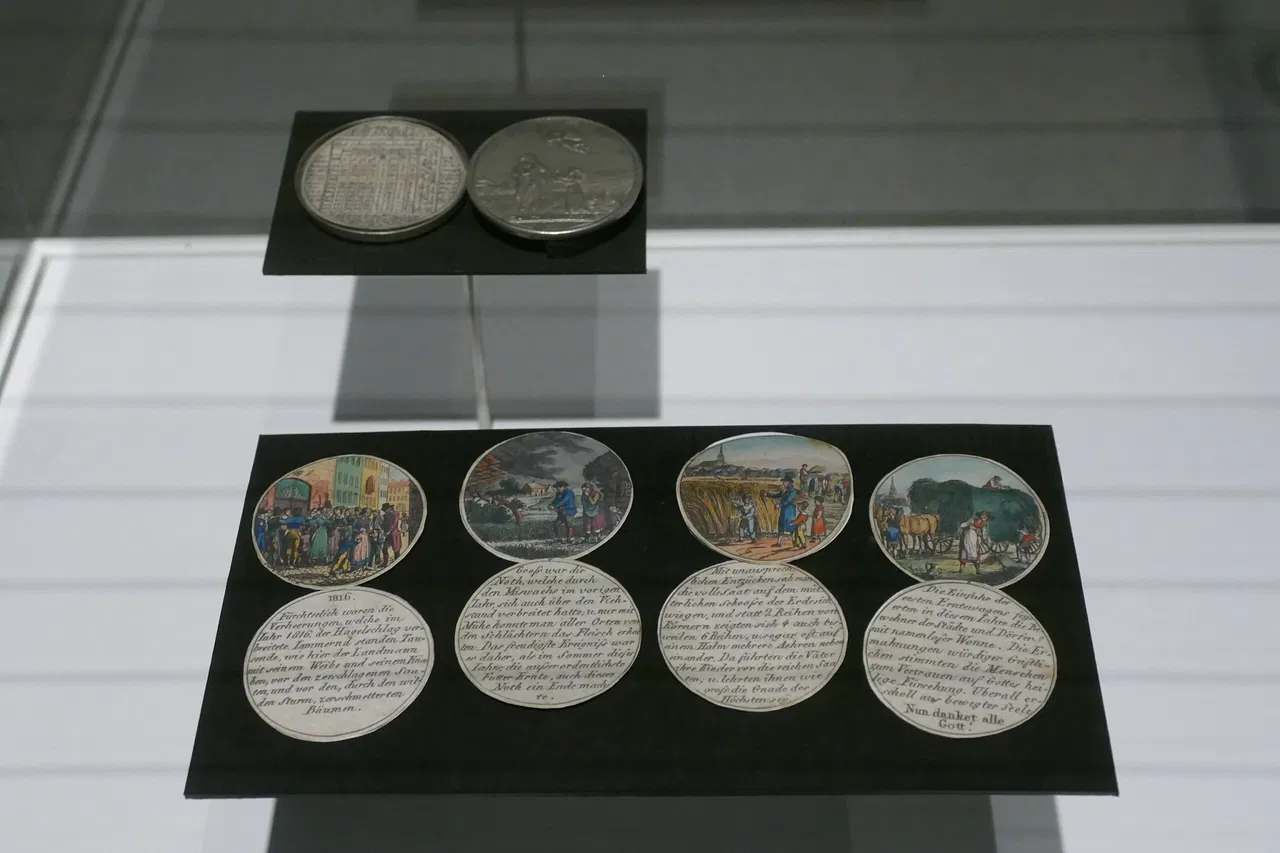 1816.
Fürchterlich waren die
Verheerungen, welche im
Jahr 1816. der Hagelschlag ver
breitete. Jammernd standen Tau
sende, wie hier der Landmann
mit seinem Weibe und seinem Kna
ben, vor den zerschlagenen Saa
ten, und vor den, durch den wil
den Sturm, zerschmetterten
Bäumen.
Groß war die
Noth, welche durch
den Miswachs im vorigen
Jahr, sich auch über den Vieh-
stand verbreitet hatte; u. nur mit
Mühe konnte man aller Orten von
den Schlächtern das Fleisch erhal
ten. Das freudigste Ereigniß war
es daher, als im Sommer dieses
Jahrs, die außerordentlichste
Futter-Ernte, auch dieser
Noth ein Ende mach
te.
Mit unaussprech
lichen Entzücken sah man
die volle Saat auf dem müt
terlichen Schooße der Erde sich
wiegen, und statt 2 Reihen von
Körnern zeigten sich 4 auch bis
weilen 6 Reihen, u. sogar oft auf
einem Halm mehrere Aehren neben
einander. Da führten die Väter
ihre Kinder vor die reichen Saa
ten, u. lehrten ihnen wie
groß die Gnade des
Höchsten sey.
Die Einfuhr des
ersten Erntewagens, feyer
ten in diesem Jahre die Be
wohner der Städte und Dörfer
mit namenloser Wonne. Die Er
mahnungen würdiger Geistli
chen stimmten die Menschen
zum Vertrauen auf Gottes hei
lige Fürsehung. Überall er
scholl aus bewegter Seele
Nun danket alle
Gott!